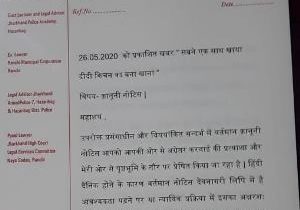 Ref.No.
Date
Guest Lecturer and Legal Advisor
Jharkhand Police Academy,
Hazaribag
Ex. Lawyer
Ranchi Municipal Corporation
Ranchi
Legal Advisor Jharkhand
Armed Police 7, Hazaribag
& Hazaribag Distt. Police
Panel Lawyer
Jharkhand High Court
Legal Services Committee
Naya Sadak, Ranchi
26.05.2020 को प्रकाशित खबर " सबने एक साथ खाया
दीदी किचन का बना खाना "
विषय- क़ानूनी नोटिस |
महाशय ,
उपरोक्त प्रसंगाधीन और विषयांकित सन्दर्भ में वर्तमान क़ानूनी
नोटिस आपको आपकी ओर से अग्रेतर करवाई की प्रत्याशा और
मेरी ओर से पृष्ठभूमि के तौर पर प्रेषित किया जा रहा है | हिंदी
दैनिक होने के कारण वर्तमान नोटिस देवनागरी लिपि में है
आवश्यकता पड़ने पर या न्यायिक प्रक्रिया में इसका अक्षरशः